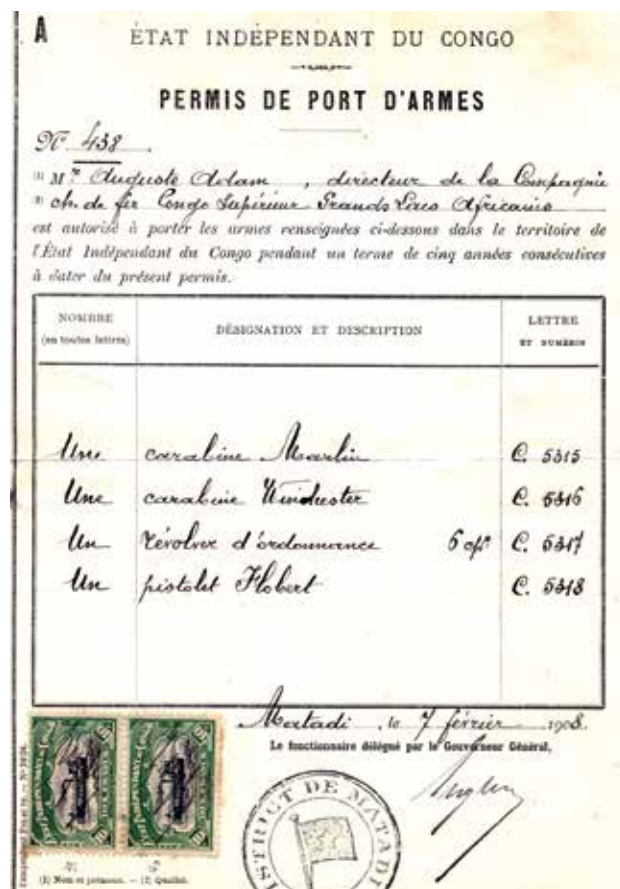 A
ÉTAT INDÉPENDANT DU CONGO
PERMIS DE PORT D'ARMES
Nº 438.
(1) Mr Auguste Adam, directeur de la Compagnie
(2) ch. de fer Congo Supérieur Grands Lacs Africains
est autorisé à porter les armes renseignées ci-dessous dans le territoire de
l'État Indépendant du Congo pendant un terme de cinq années consécutives
à dater du présent permis.
NOMBRE
(en toutes lettres)
DÉSIGNATION ET DESCRIPTION
LETTRE
ET NUMÉROS
Une carabine Marlin C. 5315
Une carabine Winchester C. 5316
Un révolver d'ordonnance 6 C. 5317
Un pistolet Flobert C. 5318
Matadi, le 7 février 1908.
Le fonctionnaire délégué par le Gouverneur Général,
DISTRICT DE MATADI
ÉTAT INDÉPENDANT DU CONGO
10 10
ÉTAT INDÉPENDANT DU CONGO
10 10
(1) Nom et prénoms. — (2) Qualité.